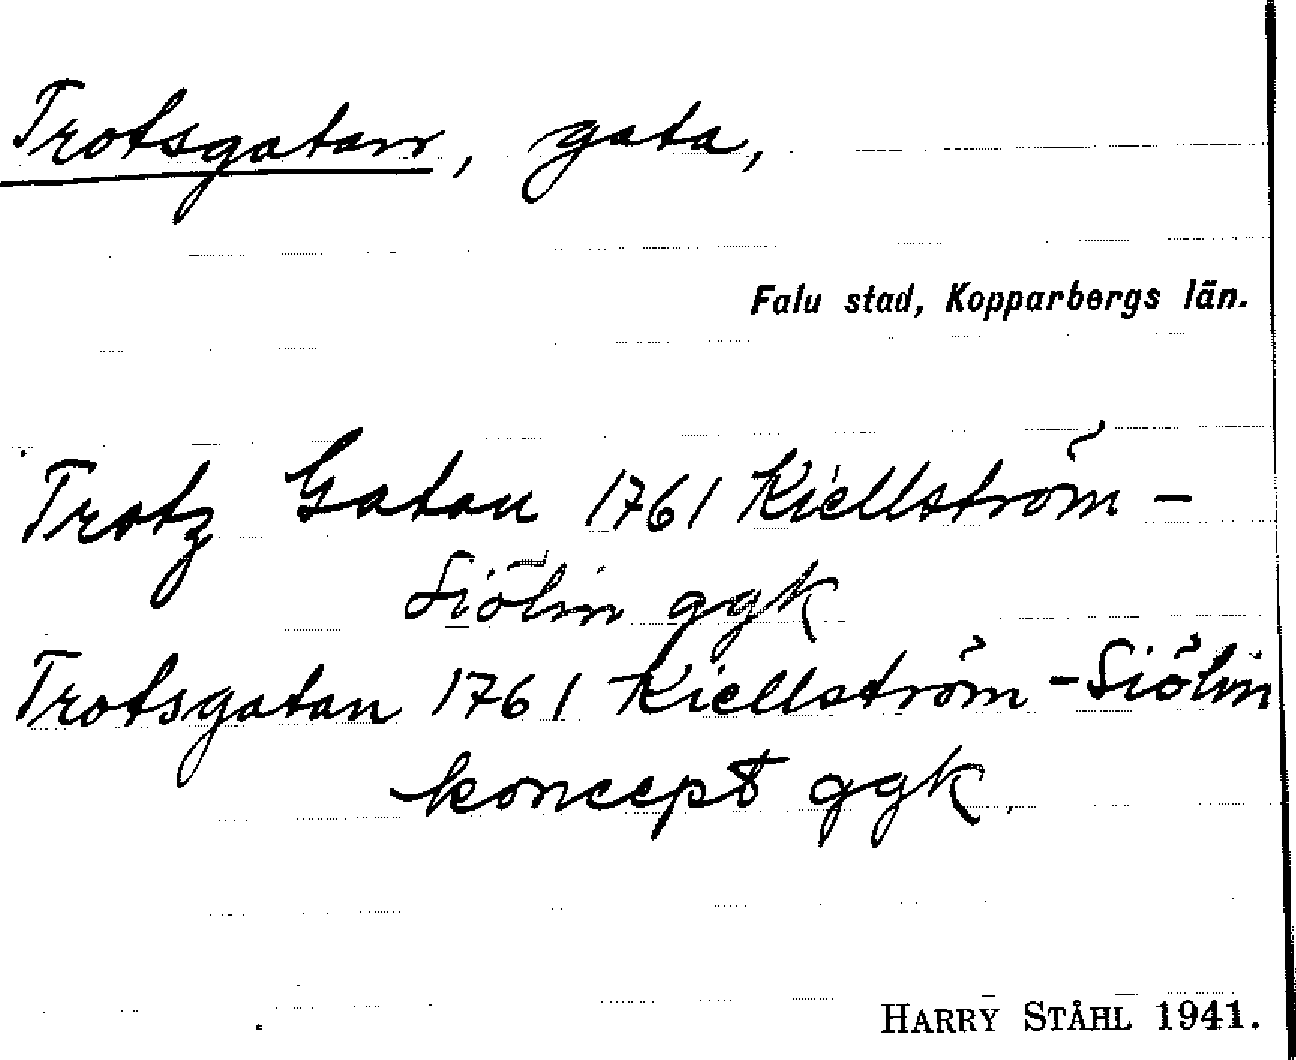 Trotsgatan, gata,
Falu stad, Kopparbergs län.
Trotz Gatan 1761 Kiellström-
Siölin ggk
Trotsgatan 1761 Kiellström-Siölin
koncept ggk
HARRY STÅHL 1941.